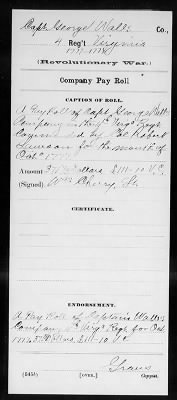 Capt. George Walls Co.,
4 Reg't Virginia
1777-1778
(Revolutionary War.)
Company Pay Roll
CAPTION OF ROLL.
A Pay Roll of Capt. George Walls
Company in the 4th Virga Regt
Comman ded by Col. Robert
Lawson for the month of
Octr 1777
Amount Dollars £111-10 V.C.
(Signed) Wm Cherry
CERTIFICATE.
ENDORSEMENT.
A Pay Roll of Captain Walls
Company 4th Virga Regt for Oct
1777 Dollars £111-10 Vc
Copyist.
[OVER.]